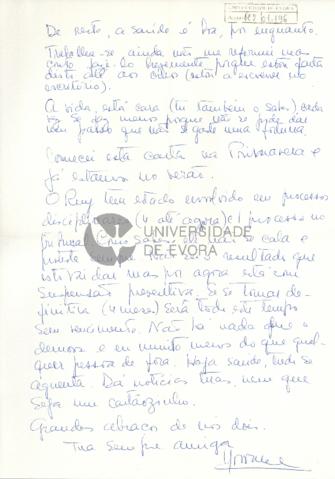 De resto, a saúde é boa, por enquanto.
Trabalha-se ainda não me reformei mas
conto fazê-lo brevemente porque estou farta
disto até aos olhos (estou a escrever no
escritório).
A vida, está cara (tu também o sabes) cada
vez se faz menos porque não se pode dar
um passo que não se gaste uma fortuna.
Comecei esta carta na Primavera e
já estamos no verão.
O Ruy tem estado envolvido em processos
disciplinares (4 até agora) e 1 processo no
Como sabes, ele não se cala e
resultado que
isto vai dar mas por agora está com
suspensão preventiva. Se se tornar de-
finitiva (4 meses) será todo este tempo
sem vencimento. Não há nada que o
demova e eu muito menos do que qual-
quer pessoa de fora. Haja saúde, tudo se
aguenta. Dá notícias tuas, nem que
seja um cartãozinho.
Grandes abraços de nós dois.
Tua sempre amiga
UNIVERSIDADE
DE ÉVORA